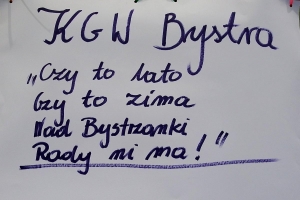 KGW Bystra
„Czy to lato
Czy to zima
Nad Bystrzanki
Rady ni ma!”